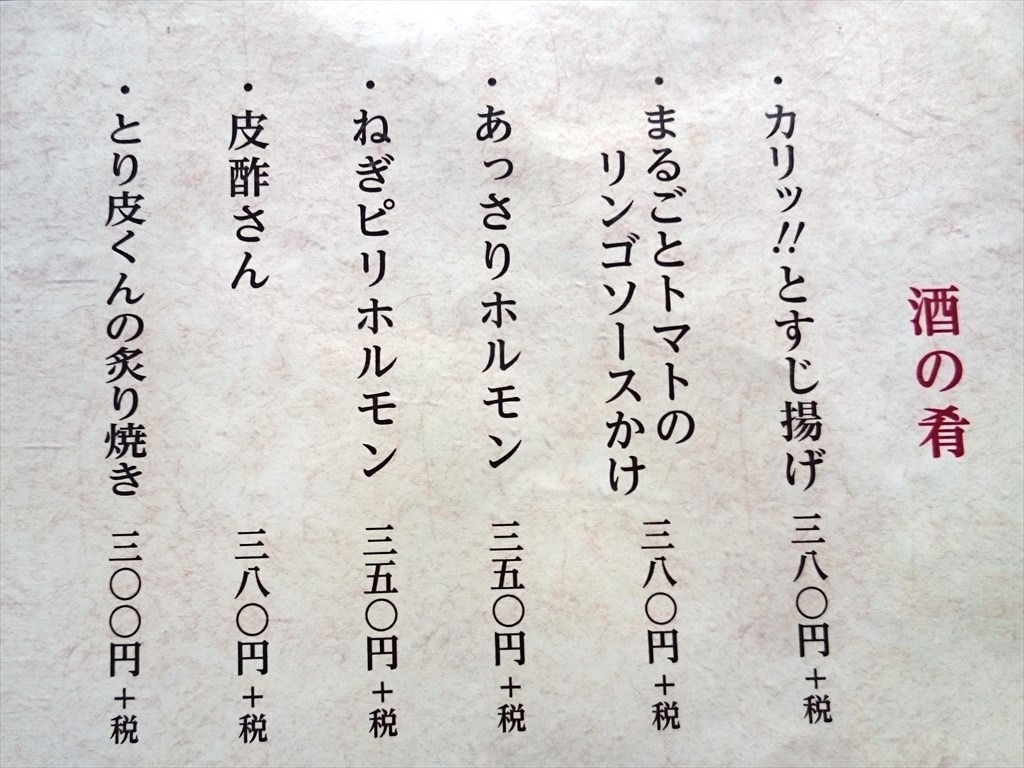 酒の肴
・カリッ!!とすじ揚げ 三八〇円+税
・まるごとトマトの
リンゴソースかけ 三八〇円+税
・あっさりホルモン 三五〇円+税
・ねぎピリホルモン 三五〇円+税
・皮酢さん 三八〇円+税
・とり皮くんの炙り焼き 三〇〇円+税